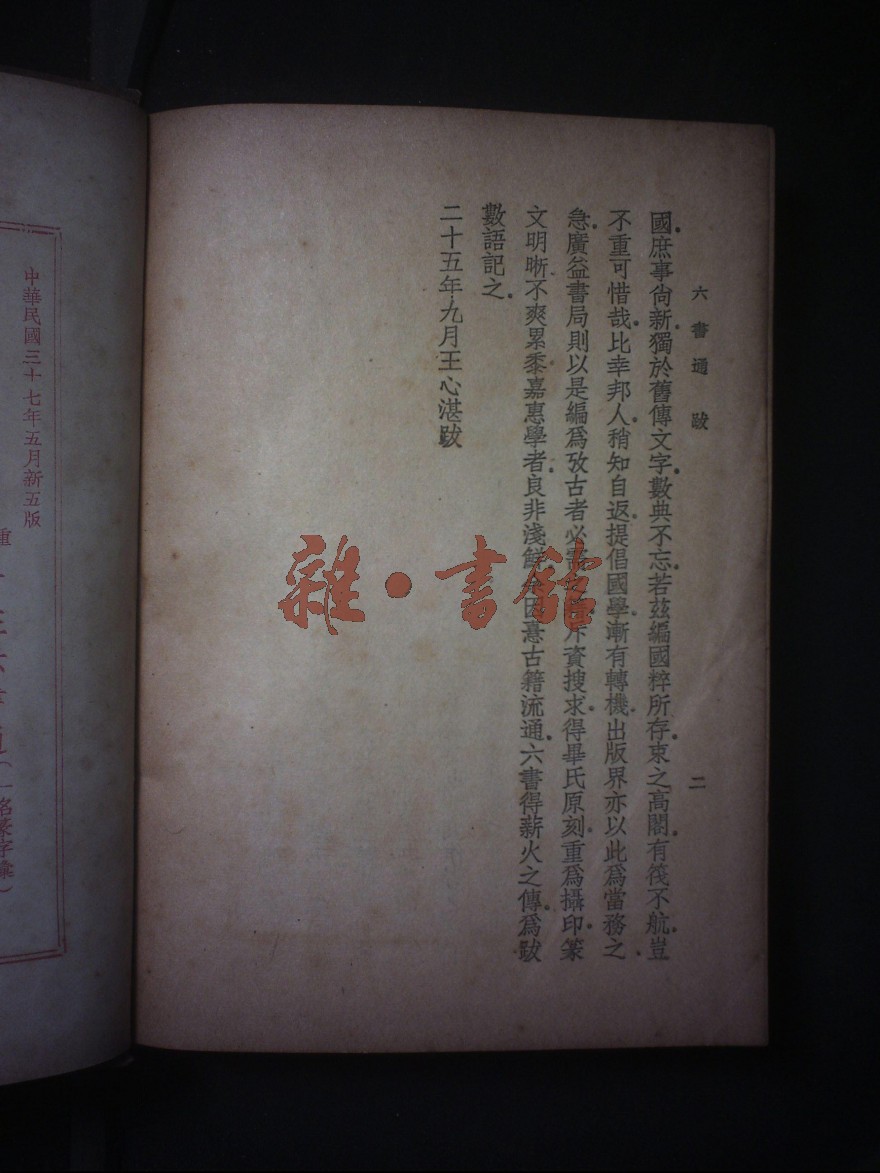 六書通 跋
二
國庶事尙新獨於舊傳文字數典不忘若茲編國粹所存束之高閣有筏不航豈
不重可惜哉比幸邦人稍知自返提倡國學漸有轉機出版界亦以此爲當務之
急廣益書局則以是編爲攷古者必需斥資搜求得畢氏原刻重爲攝印篆
文明晰不爽累黍嘉惠學者良非淺鮮余因憙古籍流通六書得薪火之傳爲跋
數語記之
二十五年九月王心湛跋
雜·書館
中華民國三十七年五月新五版
(一名篆字彙)